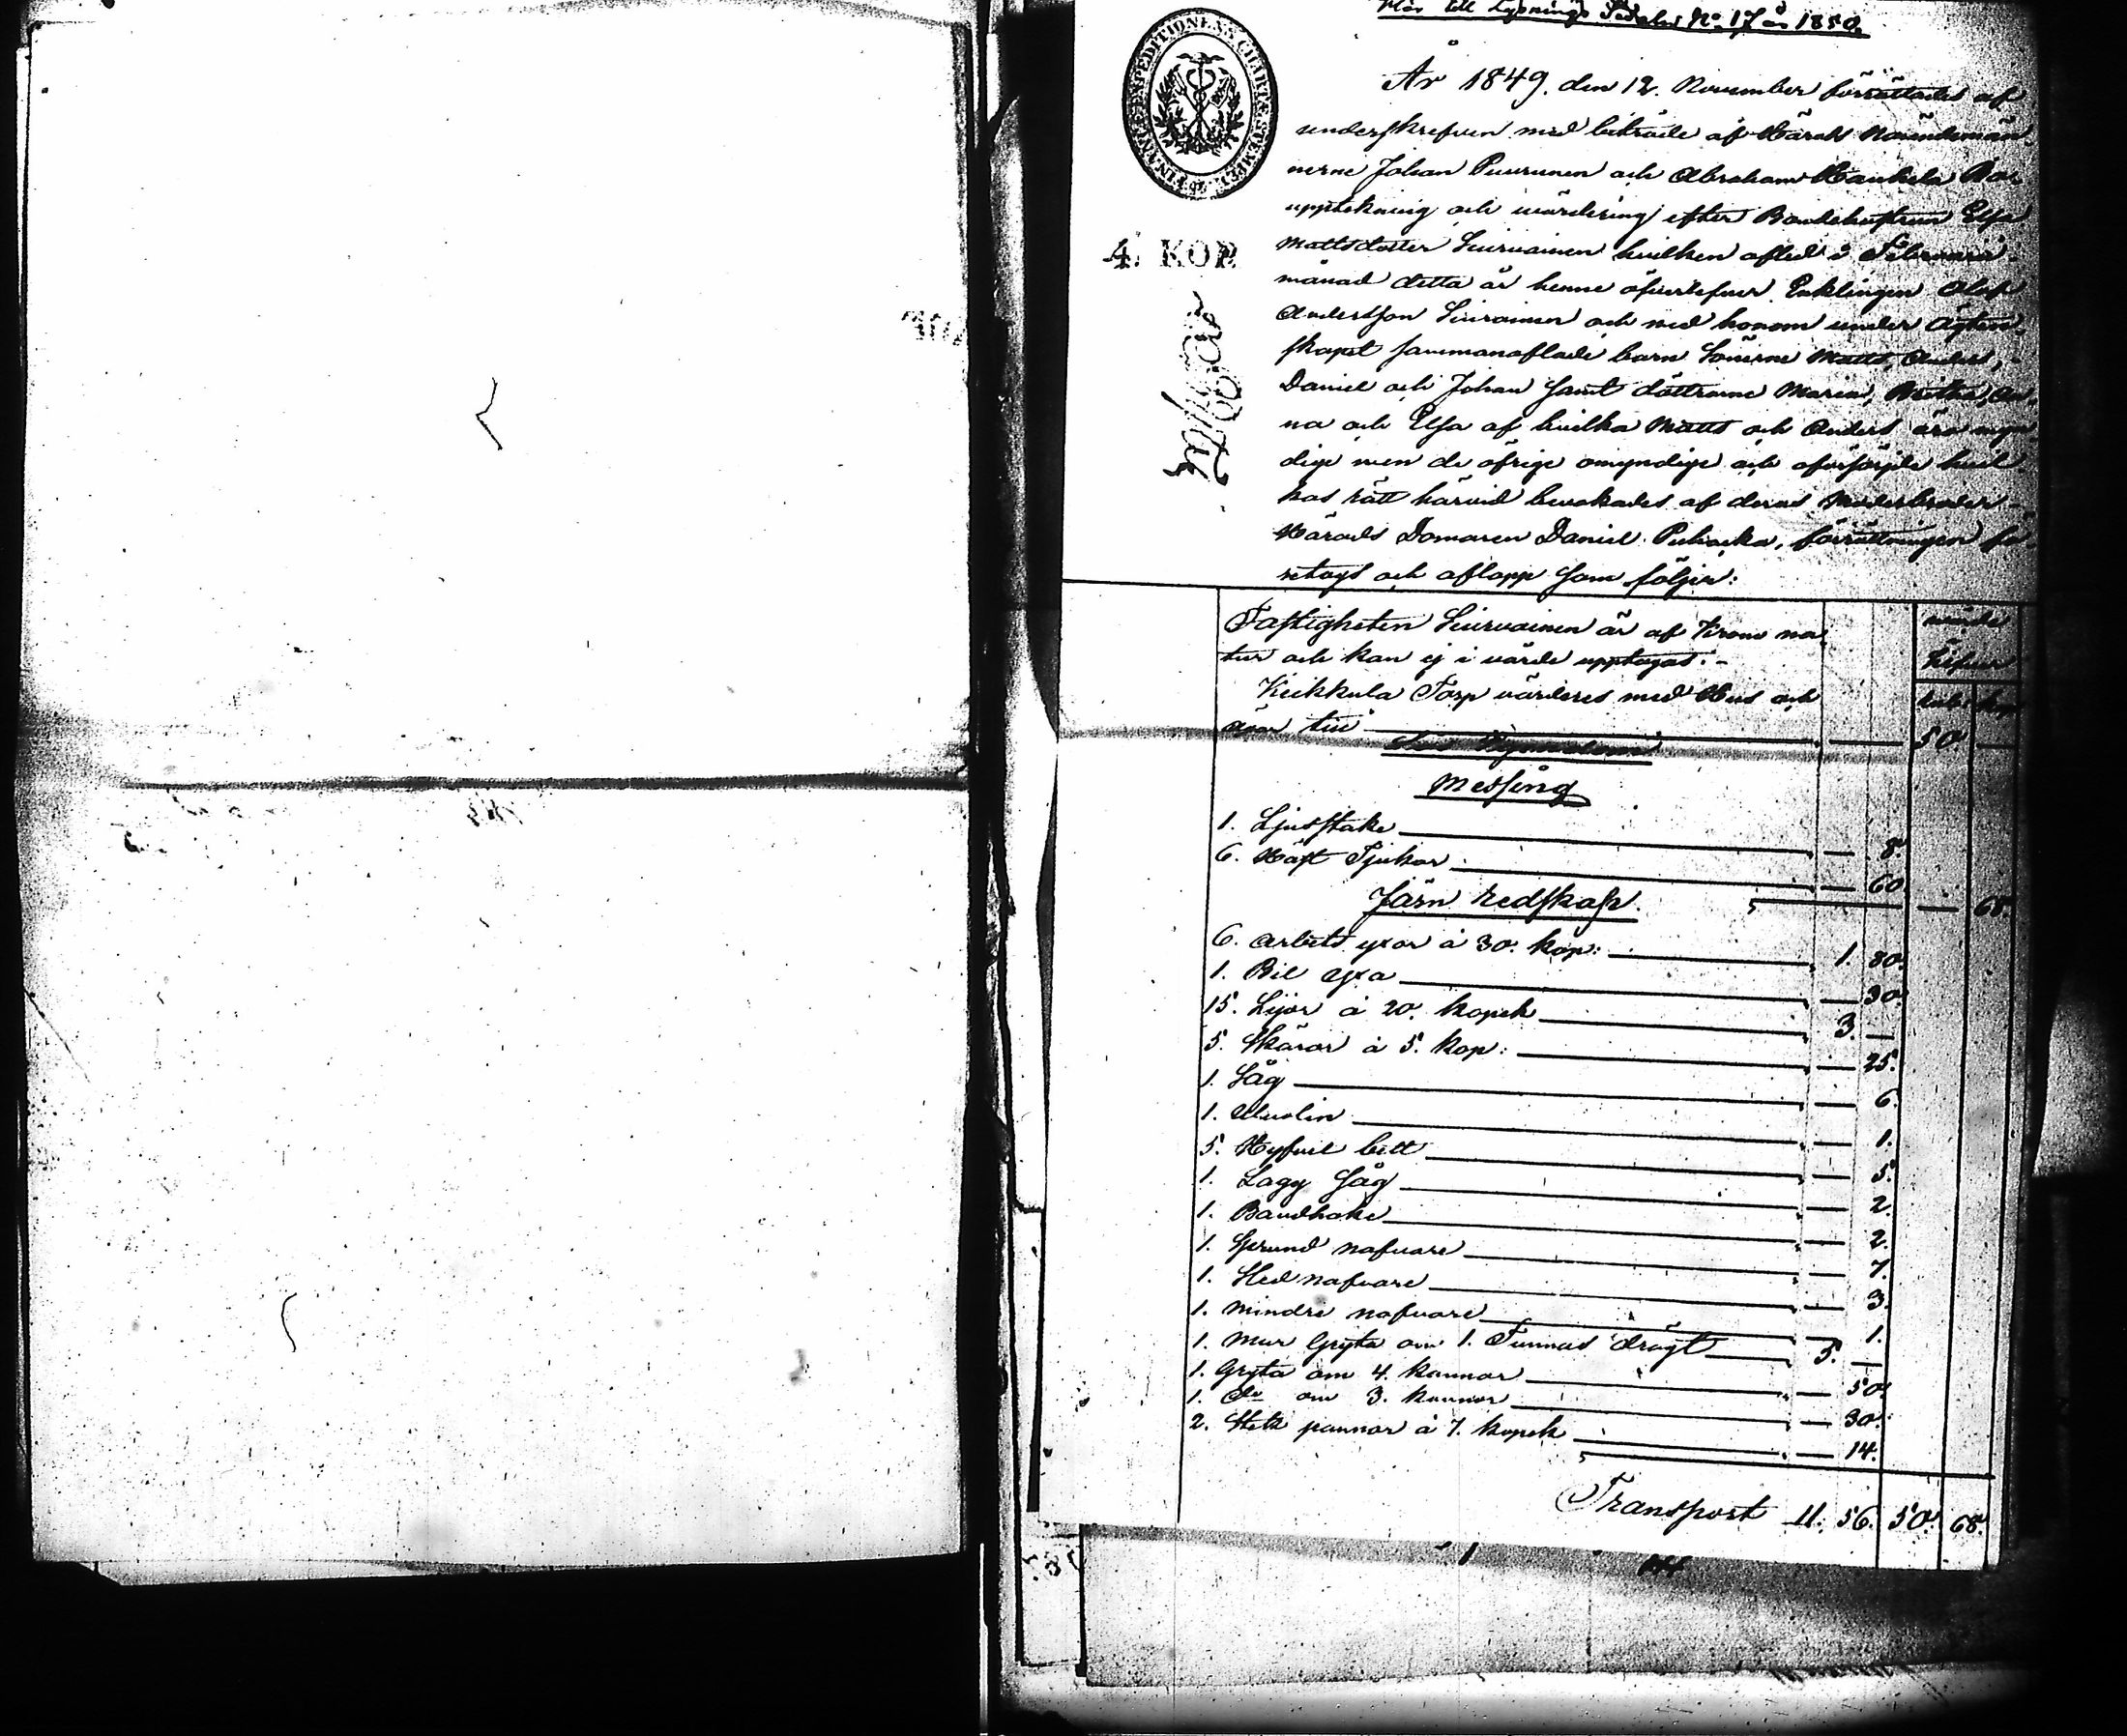 till Lysnings Sedelen No 17 år 1850.
FINANCE-EXPEDITIONENS CHARTÆ STEMPEL
År 1849. den 12. November förrättades af
underskrefven med biträde af Härads Nämndemän
nerne Johan Puurunen och Abraham Haukela Bo
uppteknuig och värdering efter Bondehustrun Elsa
Mattsdotter Seurvainen hvilken afled i Februarii
4. KOP.
månad detta år henne öfverlefver Enklingen Olof
Andersson Seurvainen och med honom under Ägten
skapet sammanaflade barn Sönerne Matts, Anders,
Daniel och Johan samt döttrarne Maria, Britha, An
na och Elsa af hvilka Matts och Anders äro myn
dige men de öfrige omyndige och oförsörgde hvil
kas rätt härvid bevakades af deras Moderbroder
Härads Domaren Daniel Puhacka, förrättningen fö
retogs och aflopp som följer:
Fastigheten Seurvainen är af Krono na
tur och kan ej i värde upptagas.-
Keikkula Torp värderes med Hus och
åcor till 50 —
Messing
1. Ljusstake — 8.
6. Häst Tjukor — 60. — 68.
Järn redskap.
6. arbets yxor à 30. kop: 1. 80.
1. Bil yxa — 30.
15. Lijor à 20. kopek 3. —
5. Skäror à 5. kop: — 25.
1. Såg — 6.
1. — 1.
5. Hyfvel bett — 5.
1. Lagg såg — 2.
1. Bandhake — 2.
1. Sprund nafvare — 7.
1. Sled nafvare — 3.
1. mindre nafvare — 1.
1. Mur Gryta om 1. Tunnas drägt 5. —
1. Gryta om 4. kannor — 50.
1. do om 3. kannor — 30.
2. Stek pannor à 7. kopek — 14.
Transport 11. 56. 50. 68.